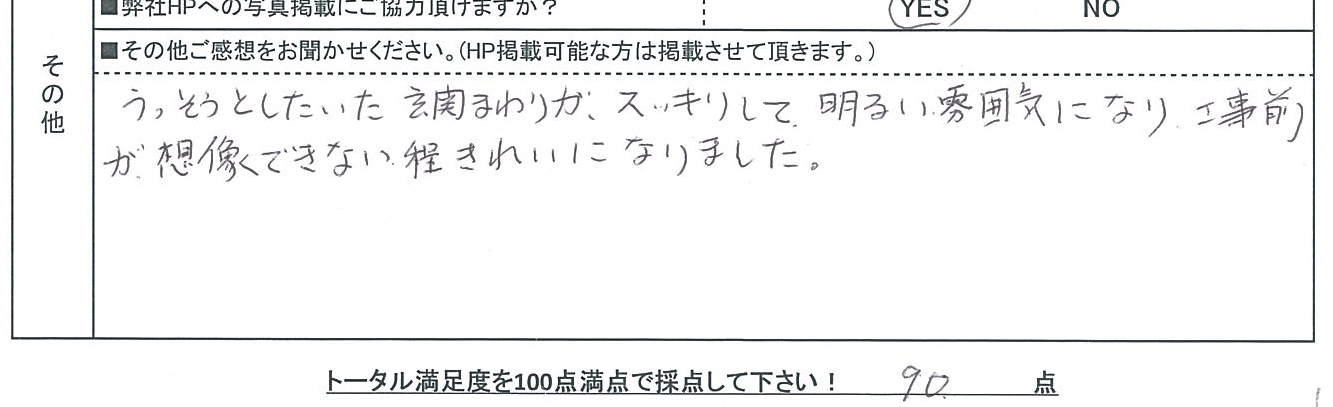 ■弊社HPへの写真掲載にご協力頂けますか？ YES NO
その他
■その他ご感想をお聞かせください。（HP掲載可能な方は掲載させて頂きます。）
うっそうとしたいた 玄関まわりが、スッキリして、明るい雰囲気になり、工事前
が想像できない程きれいになりました。
トータル満足度を100点満点で採点して下さい！ 90 点